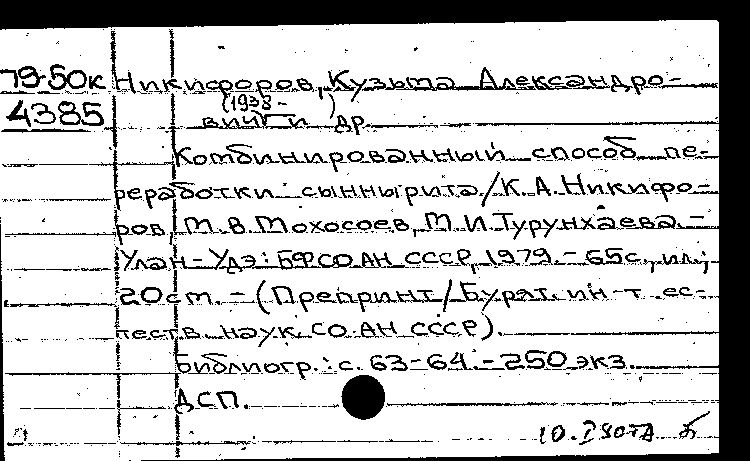 79-50к Никифоров, Кузьма Александро-
4385 (1938- )
вич и др.
Комбинированный способ пе-
реработки сыннырита / К. А. Никифо-
ров, М. В. Мохосоев, М. И. Турунхаева. -
Улан-Удэ: БФ СО АН СССР, 1979. - 65 с., ил.;
20 cm. - (Препринт / Бурят. ин-т ес-
теств. наук СО АН СССР).
Библиогр.: с. 63-64. - 250 экз.
ДСП.
10.